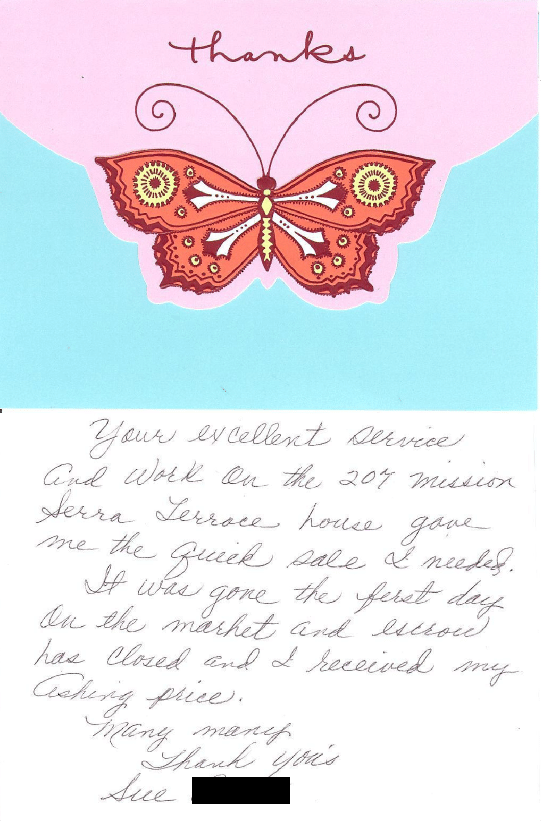 thanks
Your excellent service
and work on the 207 mission
Serra Terrace house gave
me the quick sale I needed.
It was gone the first day
on the market and escrow
has closed and I received my
asking price.
Many many
Thank you's
Sue